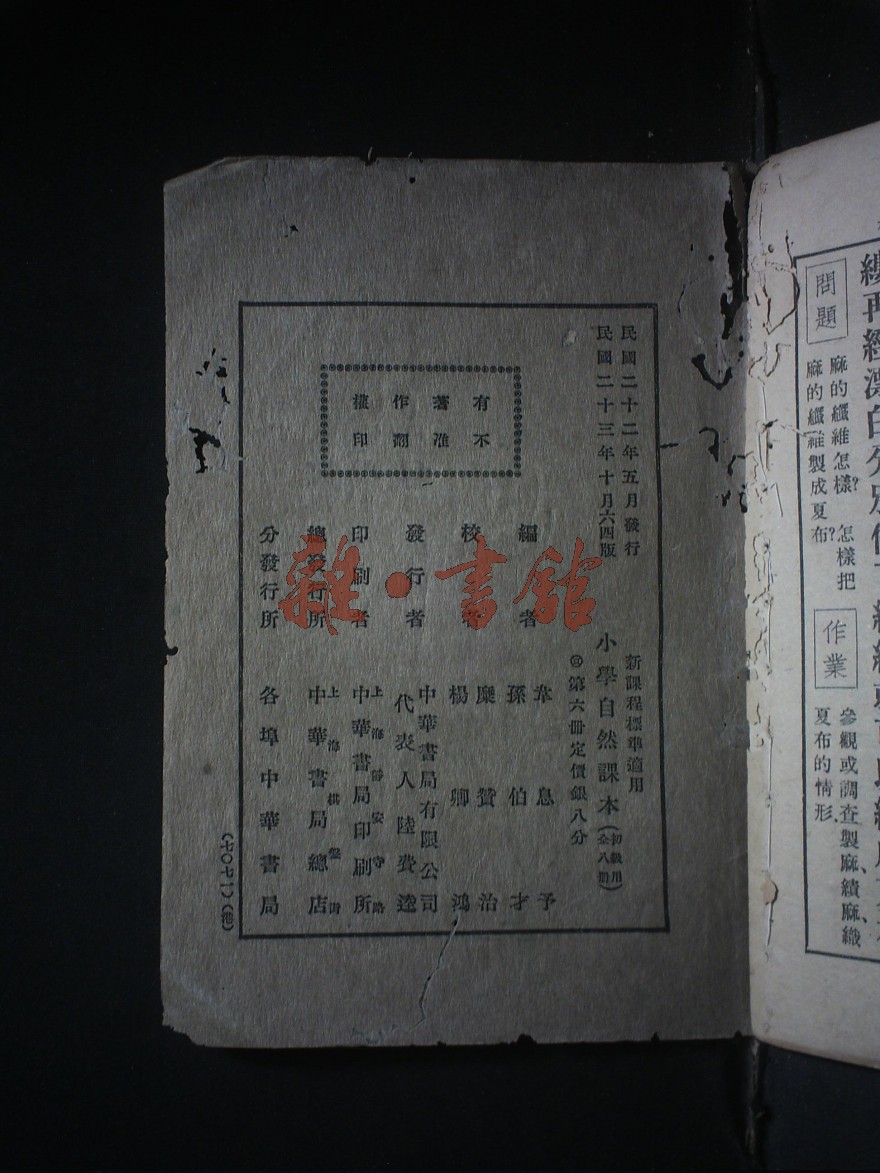 問題
麻的纖維怎樣?怎樣把
麻的纖維製成夏布?
作業
參觀或調查製麻、績麻、織
夏布的情形.
民國二十二年五月發行
民國二十三年十月六四版
新課程標準適用
小學自然課本(初級用全八冊)
第六冊定價銀八分
有著作權
不准翻印
編者 韋息予
孫伯才
校者 糜贊治
楊卿鴻
發行者 中華書局有限公司
代表人陸費逵
印刷者 上海靜安寺路
中華書局印刷所
總發行所 上海棋盤街
中華書局總店
分發行所 各埠中華書局
(七〇七一)(港)
雜·書館